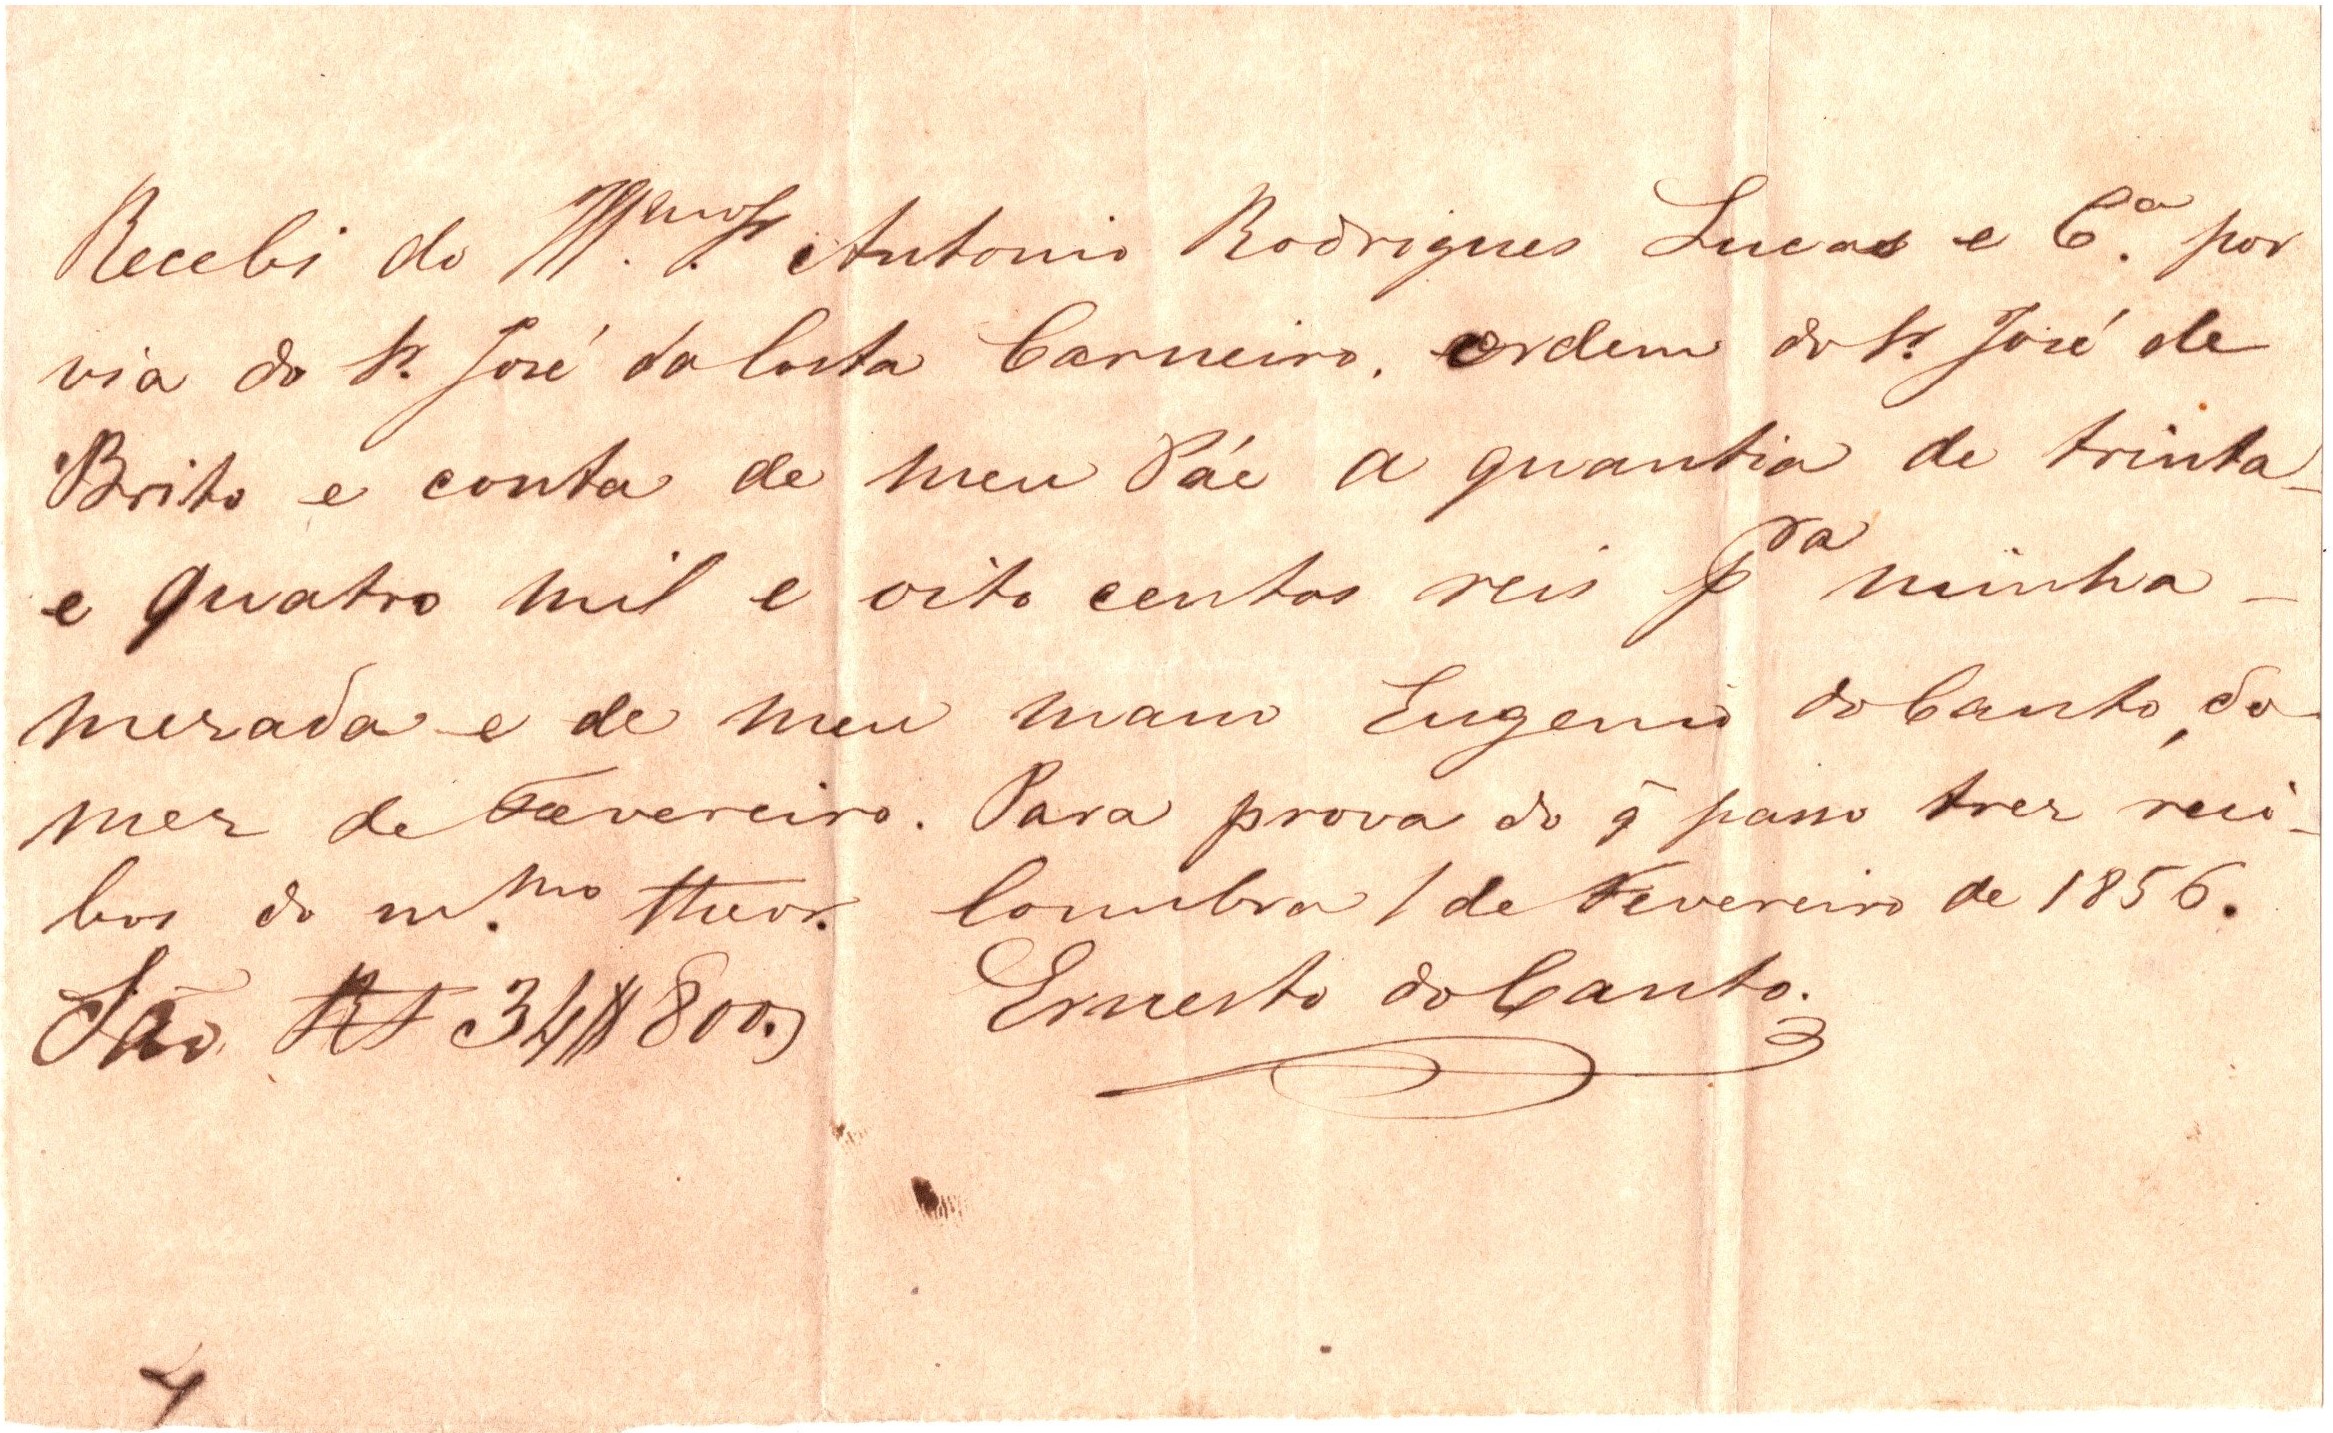 Recebi do Ill.mos Srs. Antonio Rodrigues Lucas e C.a por
via do Sr. José da Costa Carneiro, ordem do Sr. José de
Brito e conta de meu Páe a quantia de trinta
e quatro mil e oito centos reis pra minha -
mezada e de meu mano Eugenio do Canto, do
mez de Fevereiro. Para prova do q̃ passo trez reci-
bos do m.mo theor. Coimbra 1 de Fevereiro de 1856.
São RS 34$800
Ernesto do Canto.
4